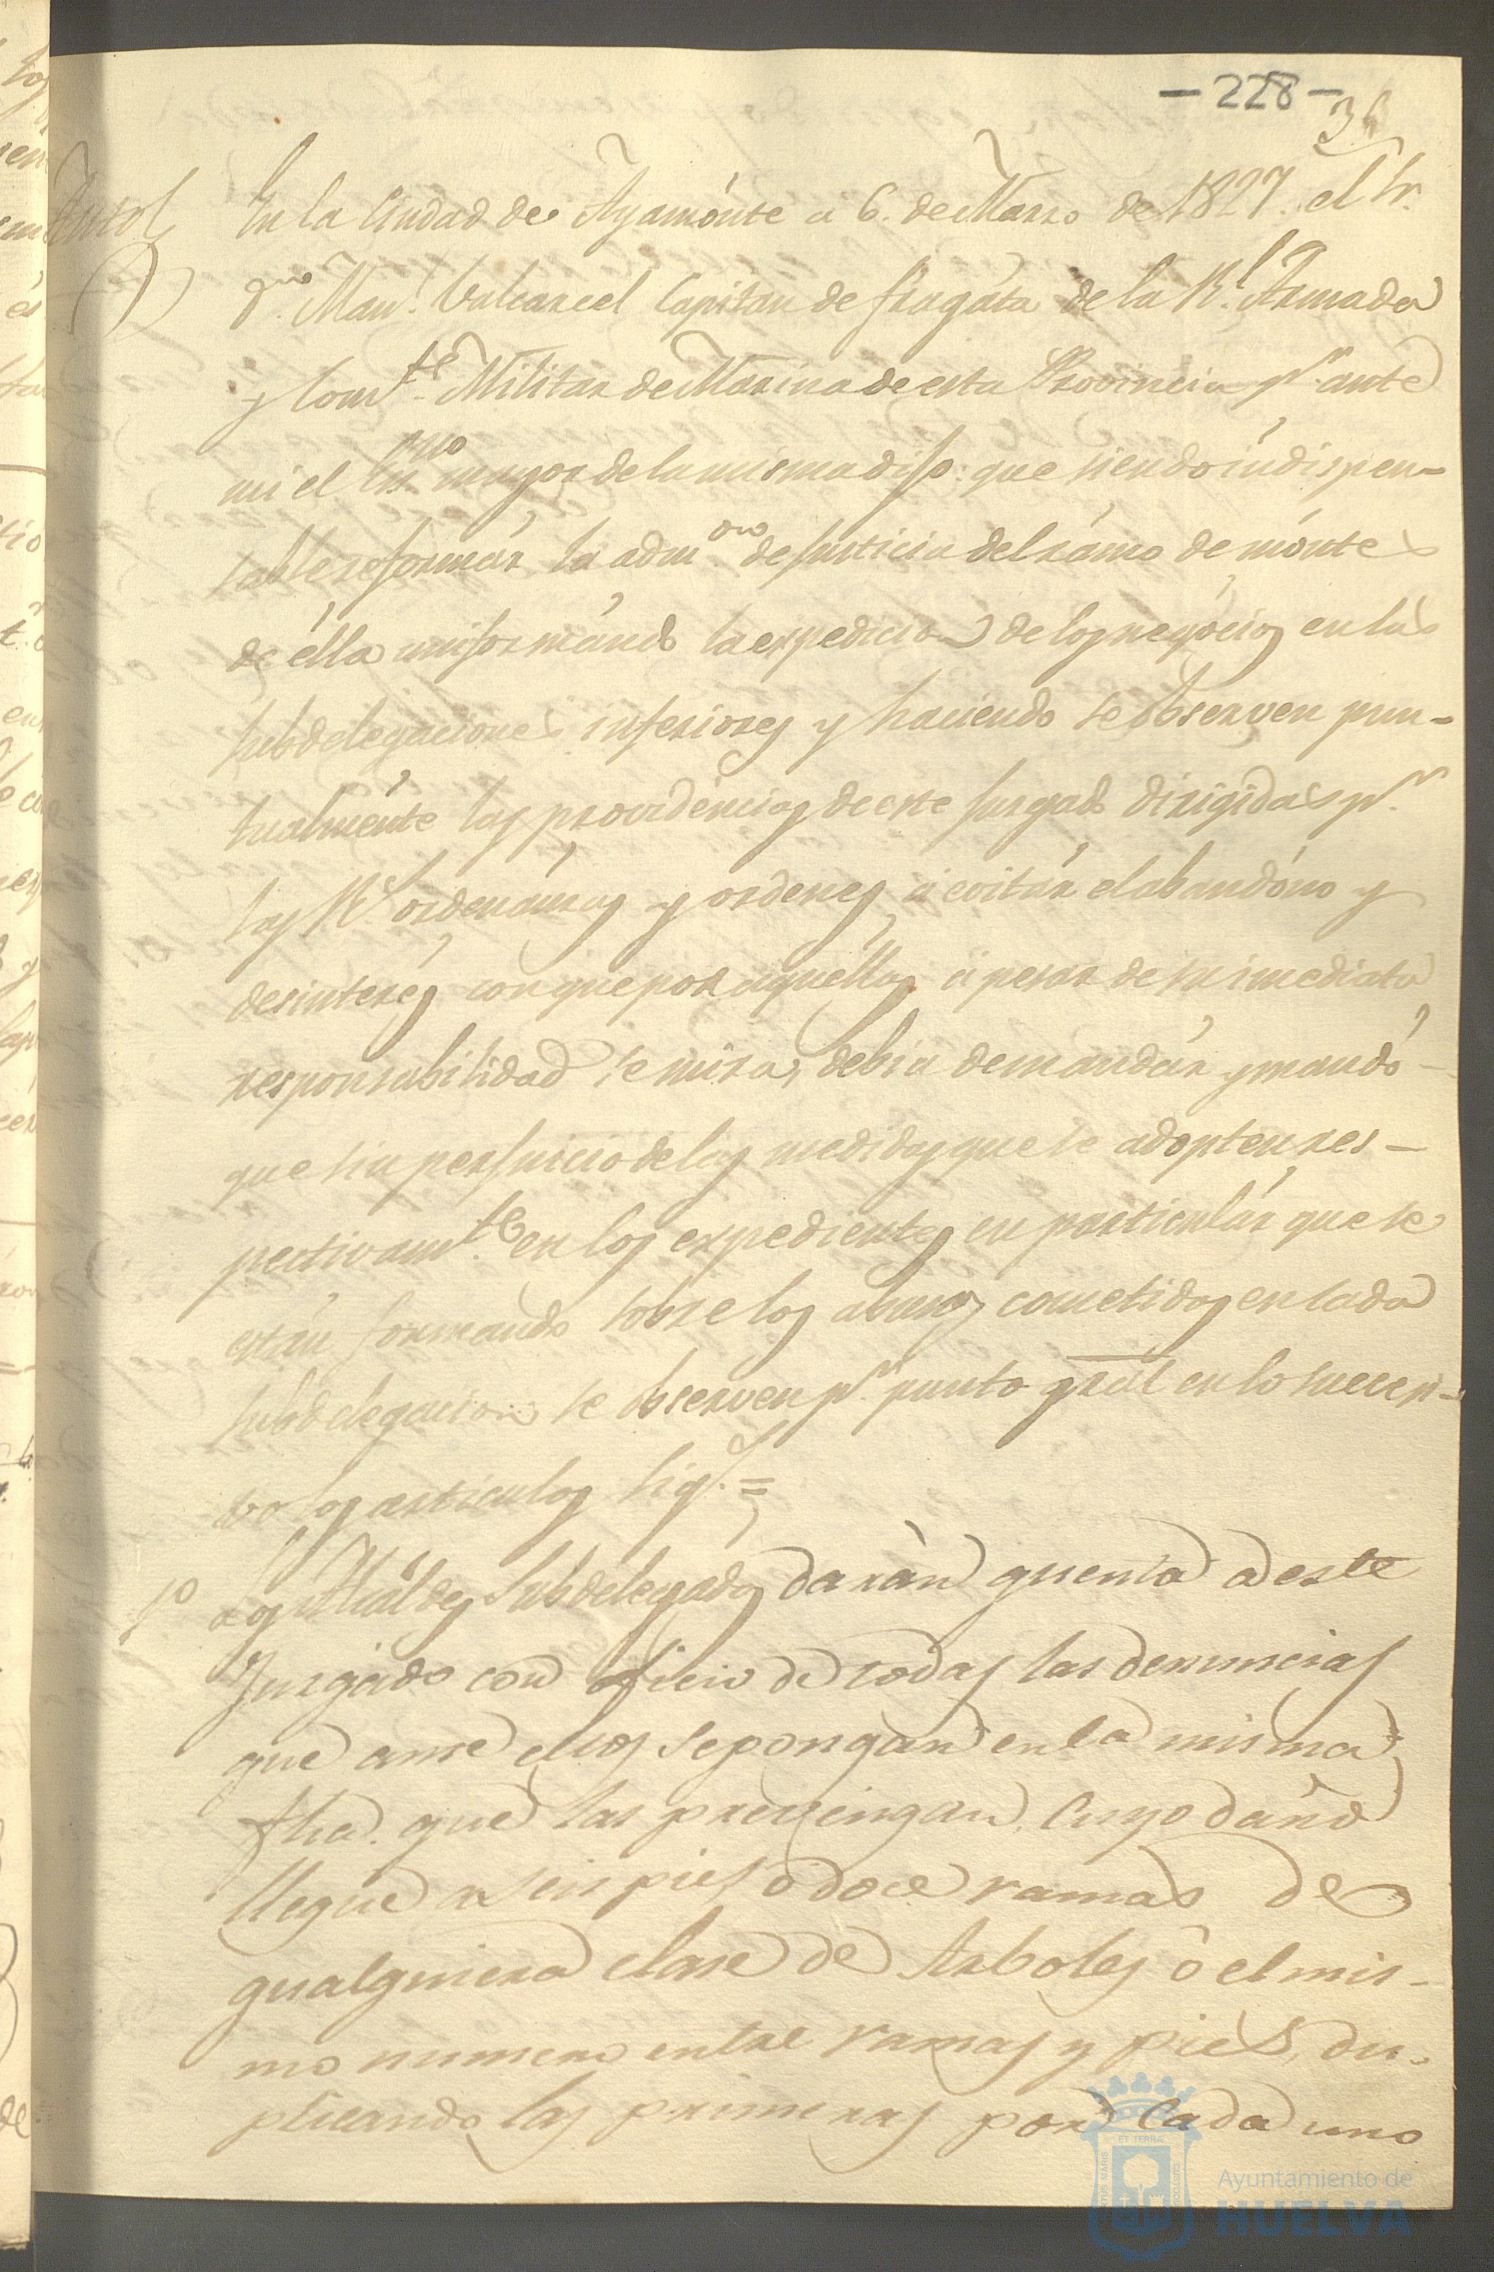 - 228 -
36
Auto En la Ciudad de Ayamonte a 6. de Marzo de 1827. el Sr.
Dn. Manl. Valcarcel Capitan de fragata de la Rl. Armada
y Comte. Militar de Marina de esta Provincia pr. ante
mi el Essno. mayor de la misma dijo: que siendo indispen-
sable reformár la admon. de Justicia del rámo de móntes
de élla uniformándo la expedicion de los negócios en lás
subdelegaciones inferiores y haciendo se observen pun-
tualménte las providéncias de este Juzgado dirigidas pr.
las Rs. ordenánzas y ordenes á evitár el abandóno y
desinterés con que por aquéllas á pesar de su imediata
responsabilidad se mira, debia de mandár y mandó
que sin perjuicio de las medidas que se adopten res-
pectivamte. en los expedientes en particulár que se
están formando sobre los abusos cometidos en cada
subdelegacion se observen pr. punto gral en lo sucesi-
vo los articulos sigs. =
1º Los Alcaldes Subdelegados darán quenta a este
Juzgado con oficio de todas las denuncias
que ante ellos se pongan en la misma
fha. que las prevengan, Cuyo daño
llegue a seis pies ó doce ramas de
qualquiera clase de Arboles ó el mis-
mo numero entre ramas y pies, du-
plicando las primeras por cada uno
ET TERRAE
Ayuntamiento de
HUELVA